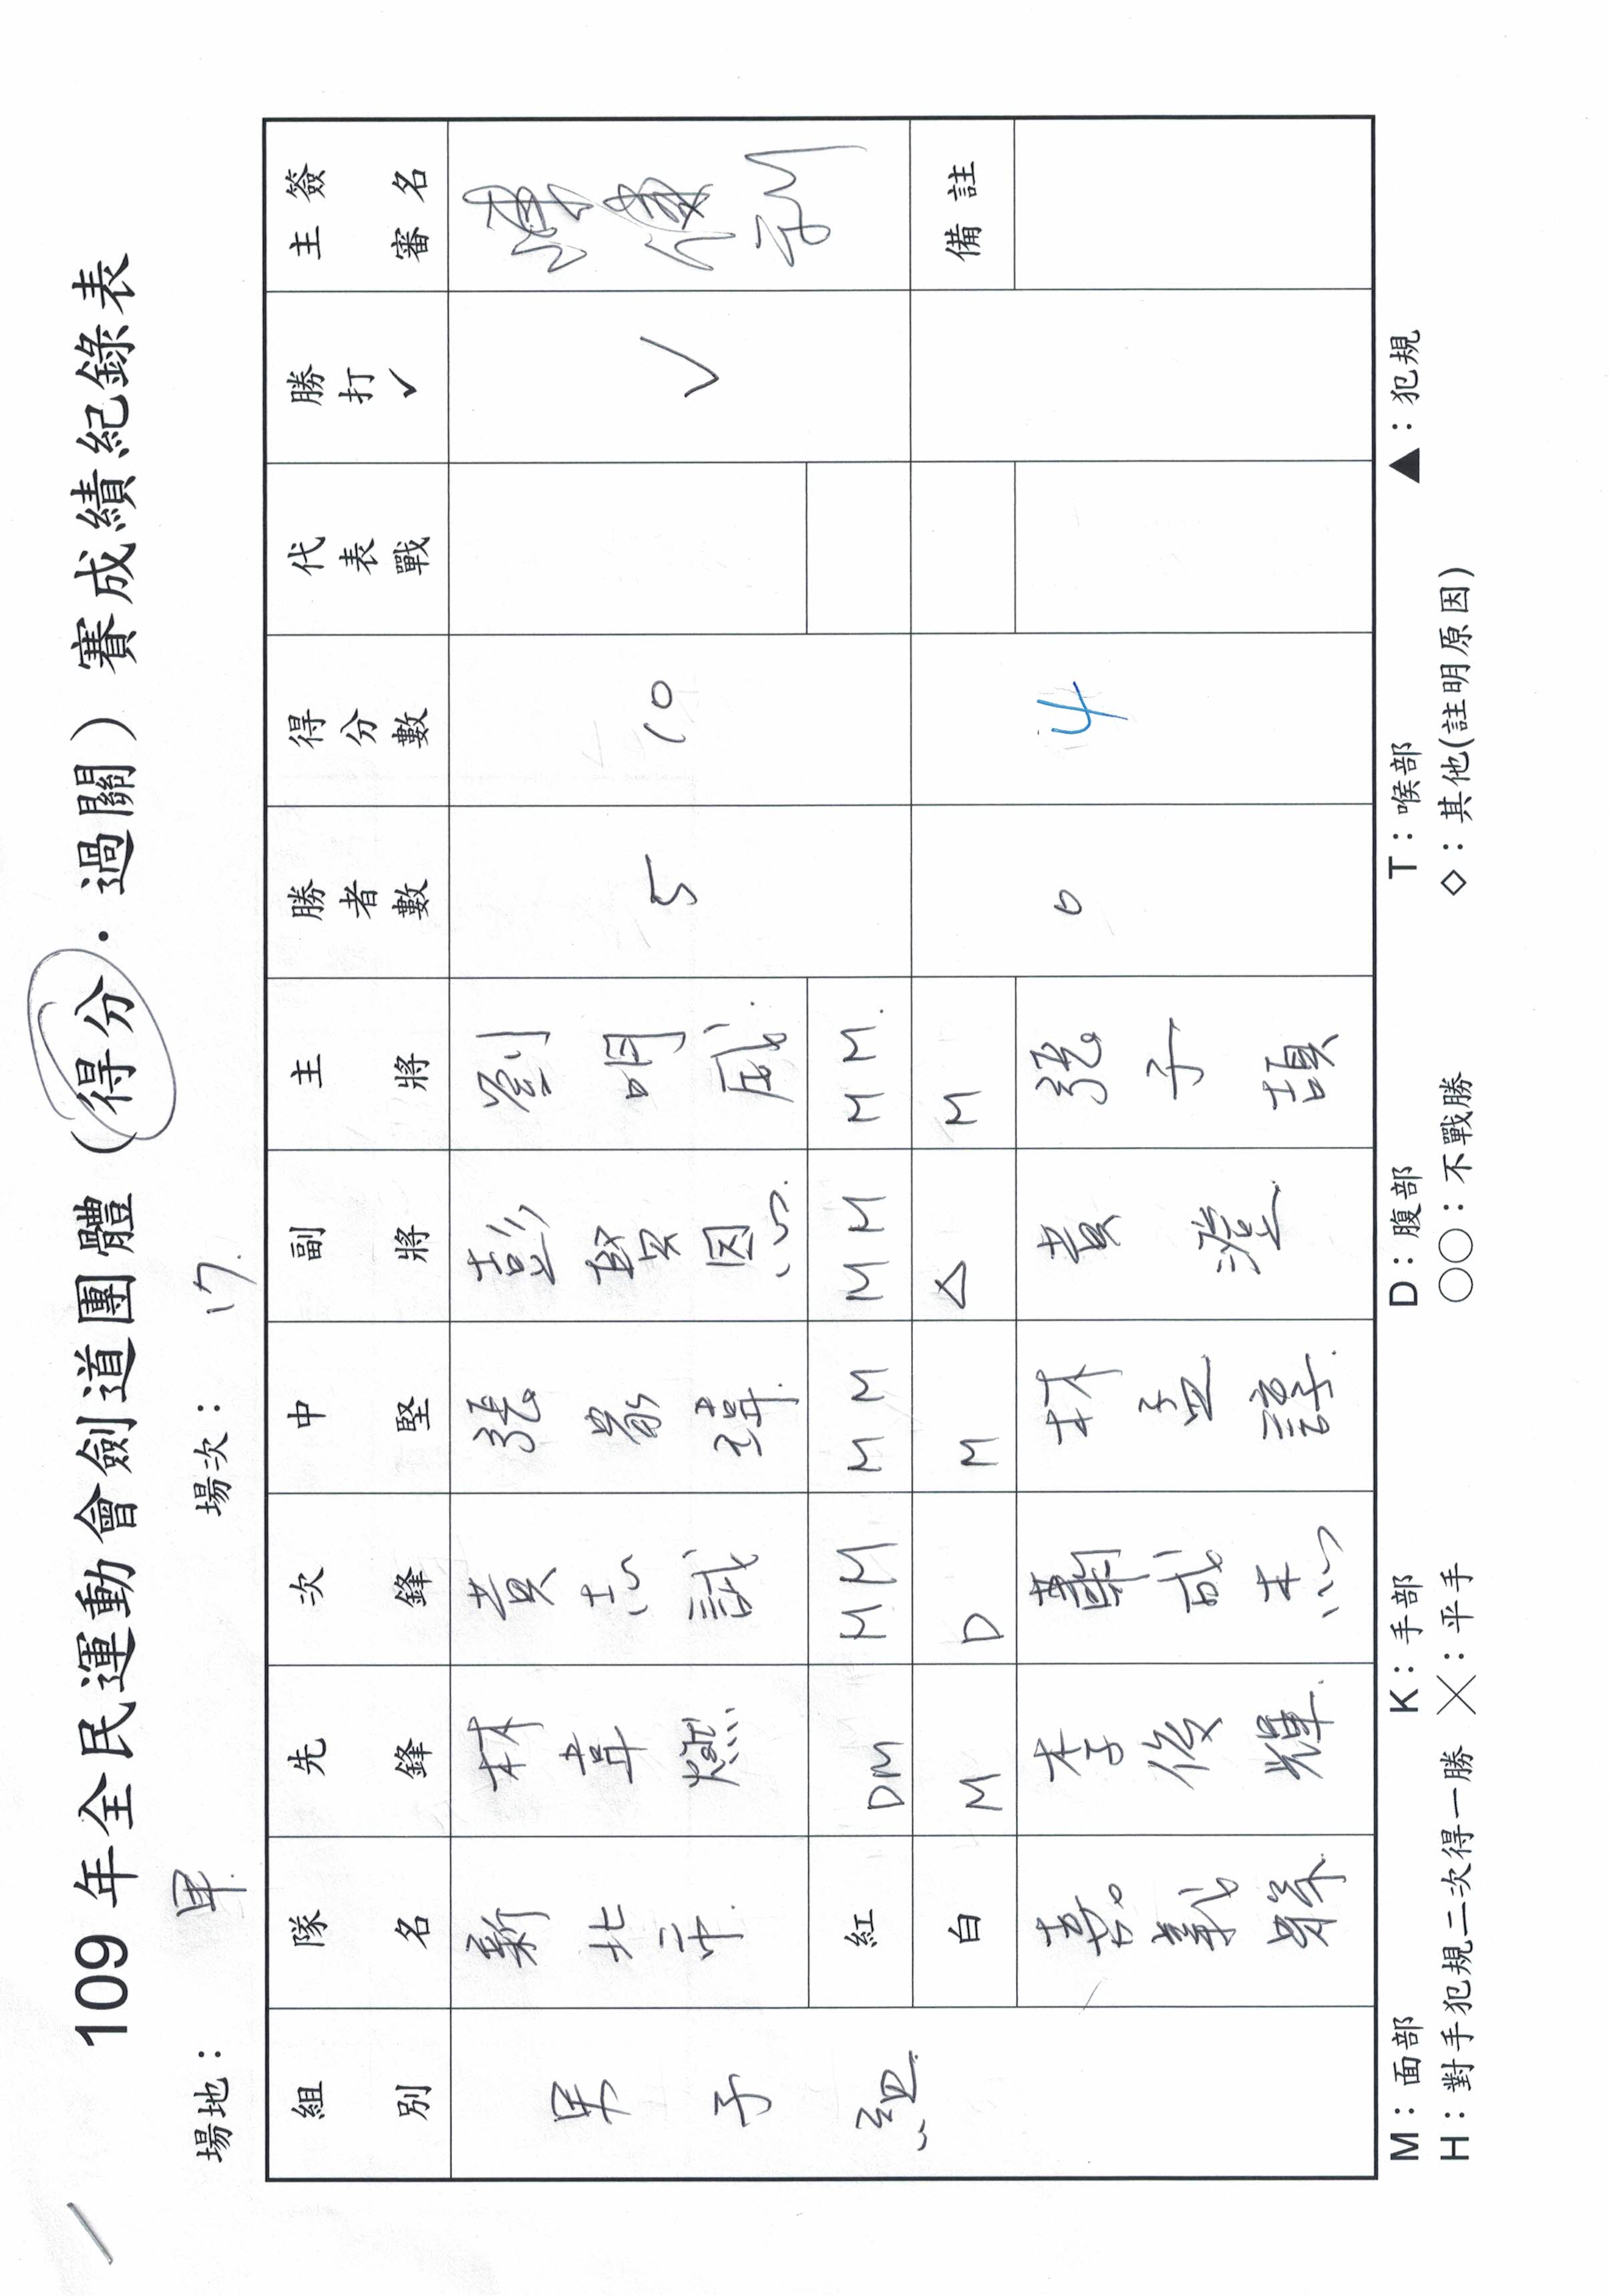 109 年全民運動會劍道團體（得分．過關）賽成績紀錄表
場地： 甲 場次： 17
組別 隊名 先鋒 次鋒 中堅 副將 主將 勝者數 得分數 代表戰 勝打✓ 主審簽名
男子組 新北市 林韋燃 黃志誠 張育瑋 彭賢恩 劉明威 5 10 ✓
紅 DM MM MM MM MM
白 M D M △ M 備註
嘉義縣 李俊輝 蕭成杰 林孟諄 黃澄 張子頡 0 4
M：面部 K：手部 D：腹部 T：喉部 ▲：犯規
H：對手犯規二次得一勝 ╳：平手 ○○：不戰勝 ◇：其他(註明原因)